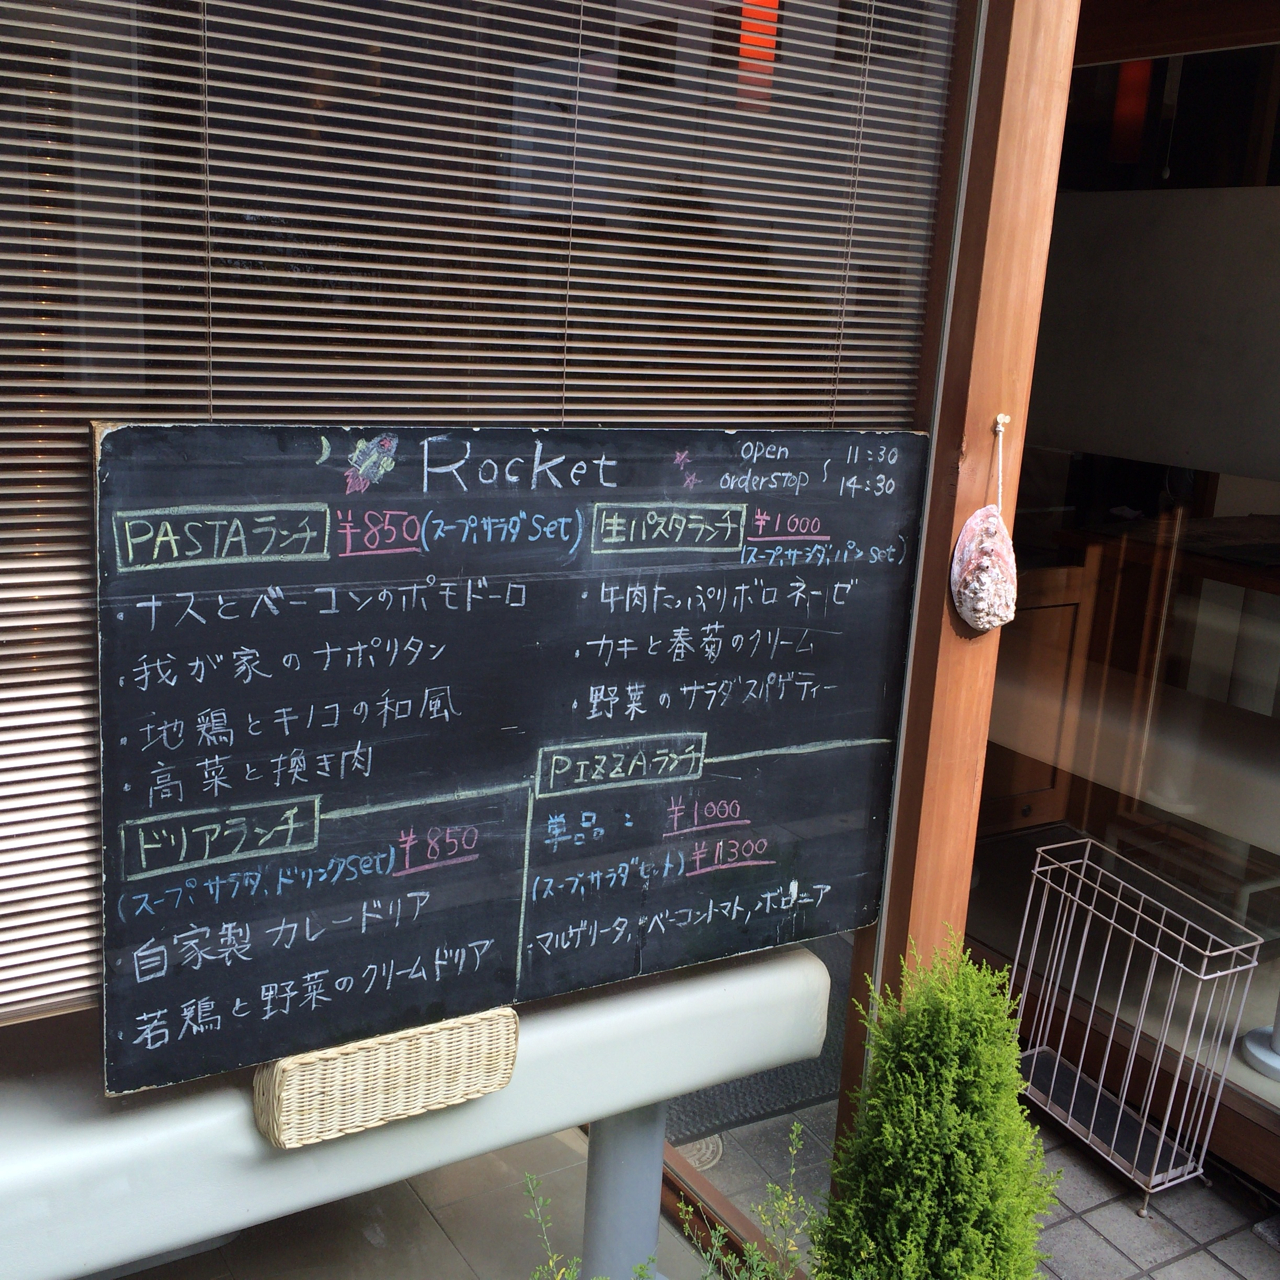 Rocket
open 11:30
orderstop 14:30
PASTAランチ ¥850(スープ,サラダset)
・ナスとベーコンのポモドーロ
・我が家のナポリタン
・地鶏とキノコの和風
・高菜と挽き肉
生パスタランチ ¥1000
(スープ,サラダ,パンset)
・牛肉たっぷりボロネーゼ
・カキと春菊のクリーム
・野菜のサラダスパゲティー
ドリアランチ ¥850
(スープ,サラダ,ドリンクset)
・自家製カレードリア
・若鶏と野菜のクリームドリア
PIZZAランチ
単品: ¥1000
(スープ,サラダセット) ¥1300
・マルゲリータ,ベーコントマト,ボロニア